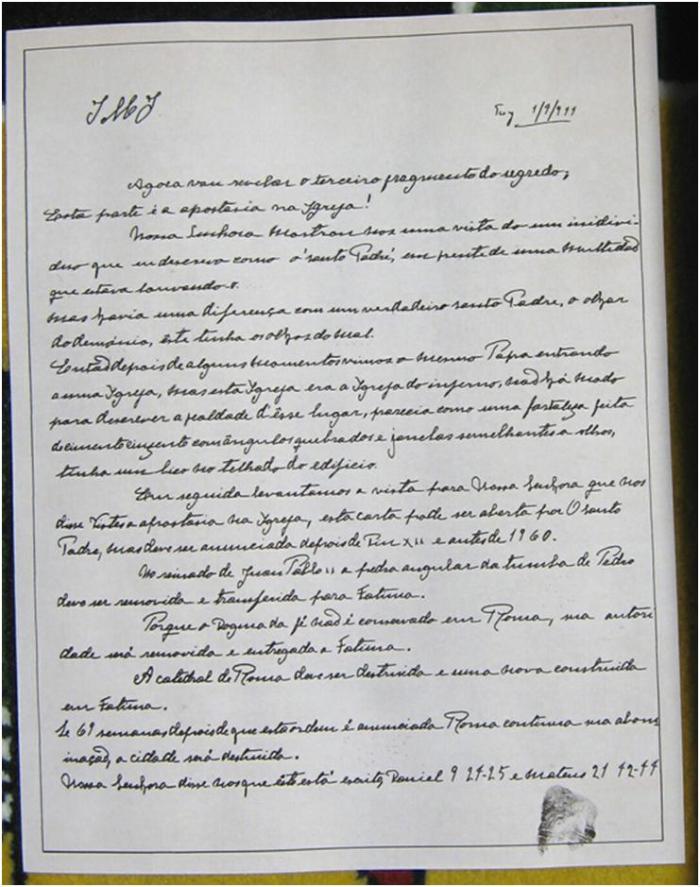 JMJ
Tuy 1/9/944
Agora vou revelar o terceiro fragmento do segredo;
Esta parte é a apostasia na Igreja!
Nossa Senhora mostrou nos uma vista do um individi-
duo que eu descrevo como o 'santo Padre', em frente de uma multidaõ
que estava louvando-o.
Mas havia uma diferença com um verdadeiro santo Padre, o olhar
do demónio, êste tinha os olhos do mal.
Entaõ depois de alguns momentos vimos o mesmo Papa entrando
a uma Igreja, mas esta Igreja era a Igreja do inferno, naõ há modo
para descrever a fealdade d'êsse lugar, parecia como uma fortaleza feita
de cimento cinzento com ângulos quebrados e janelas semelhantes a olhos,
tinha um bico no telhado do edificio.
Em seguida levantamos a vista para Nossa Senhora que nos
disse Vistes a apostasia na Igreja, esta carta pode ser aberta por O santo
Padre, mas deve ser anunciada depois de Pio XII e antes de 1960.
No reinado de Juan Pablo II a pedra angular da tumba de Pedro
deve ser removida e transferida para Fatima.
Porque o Dogma da fé naõ é conservado em Roma, sua autori
dade será removida e entregada a Fatima.
A catedral de Roma deve ser destruida e uma nova construida
em Fatima.
Se 69 semanas depois de que esta ordem é anunciada Roma continua sua abom
inaçaõ, a cidade será destruida.
Nossa Senhora disse nos que êste está escrito, Daniel 9 24-25 e Mateus 21 42-44